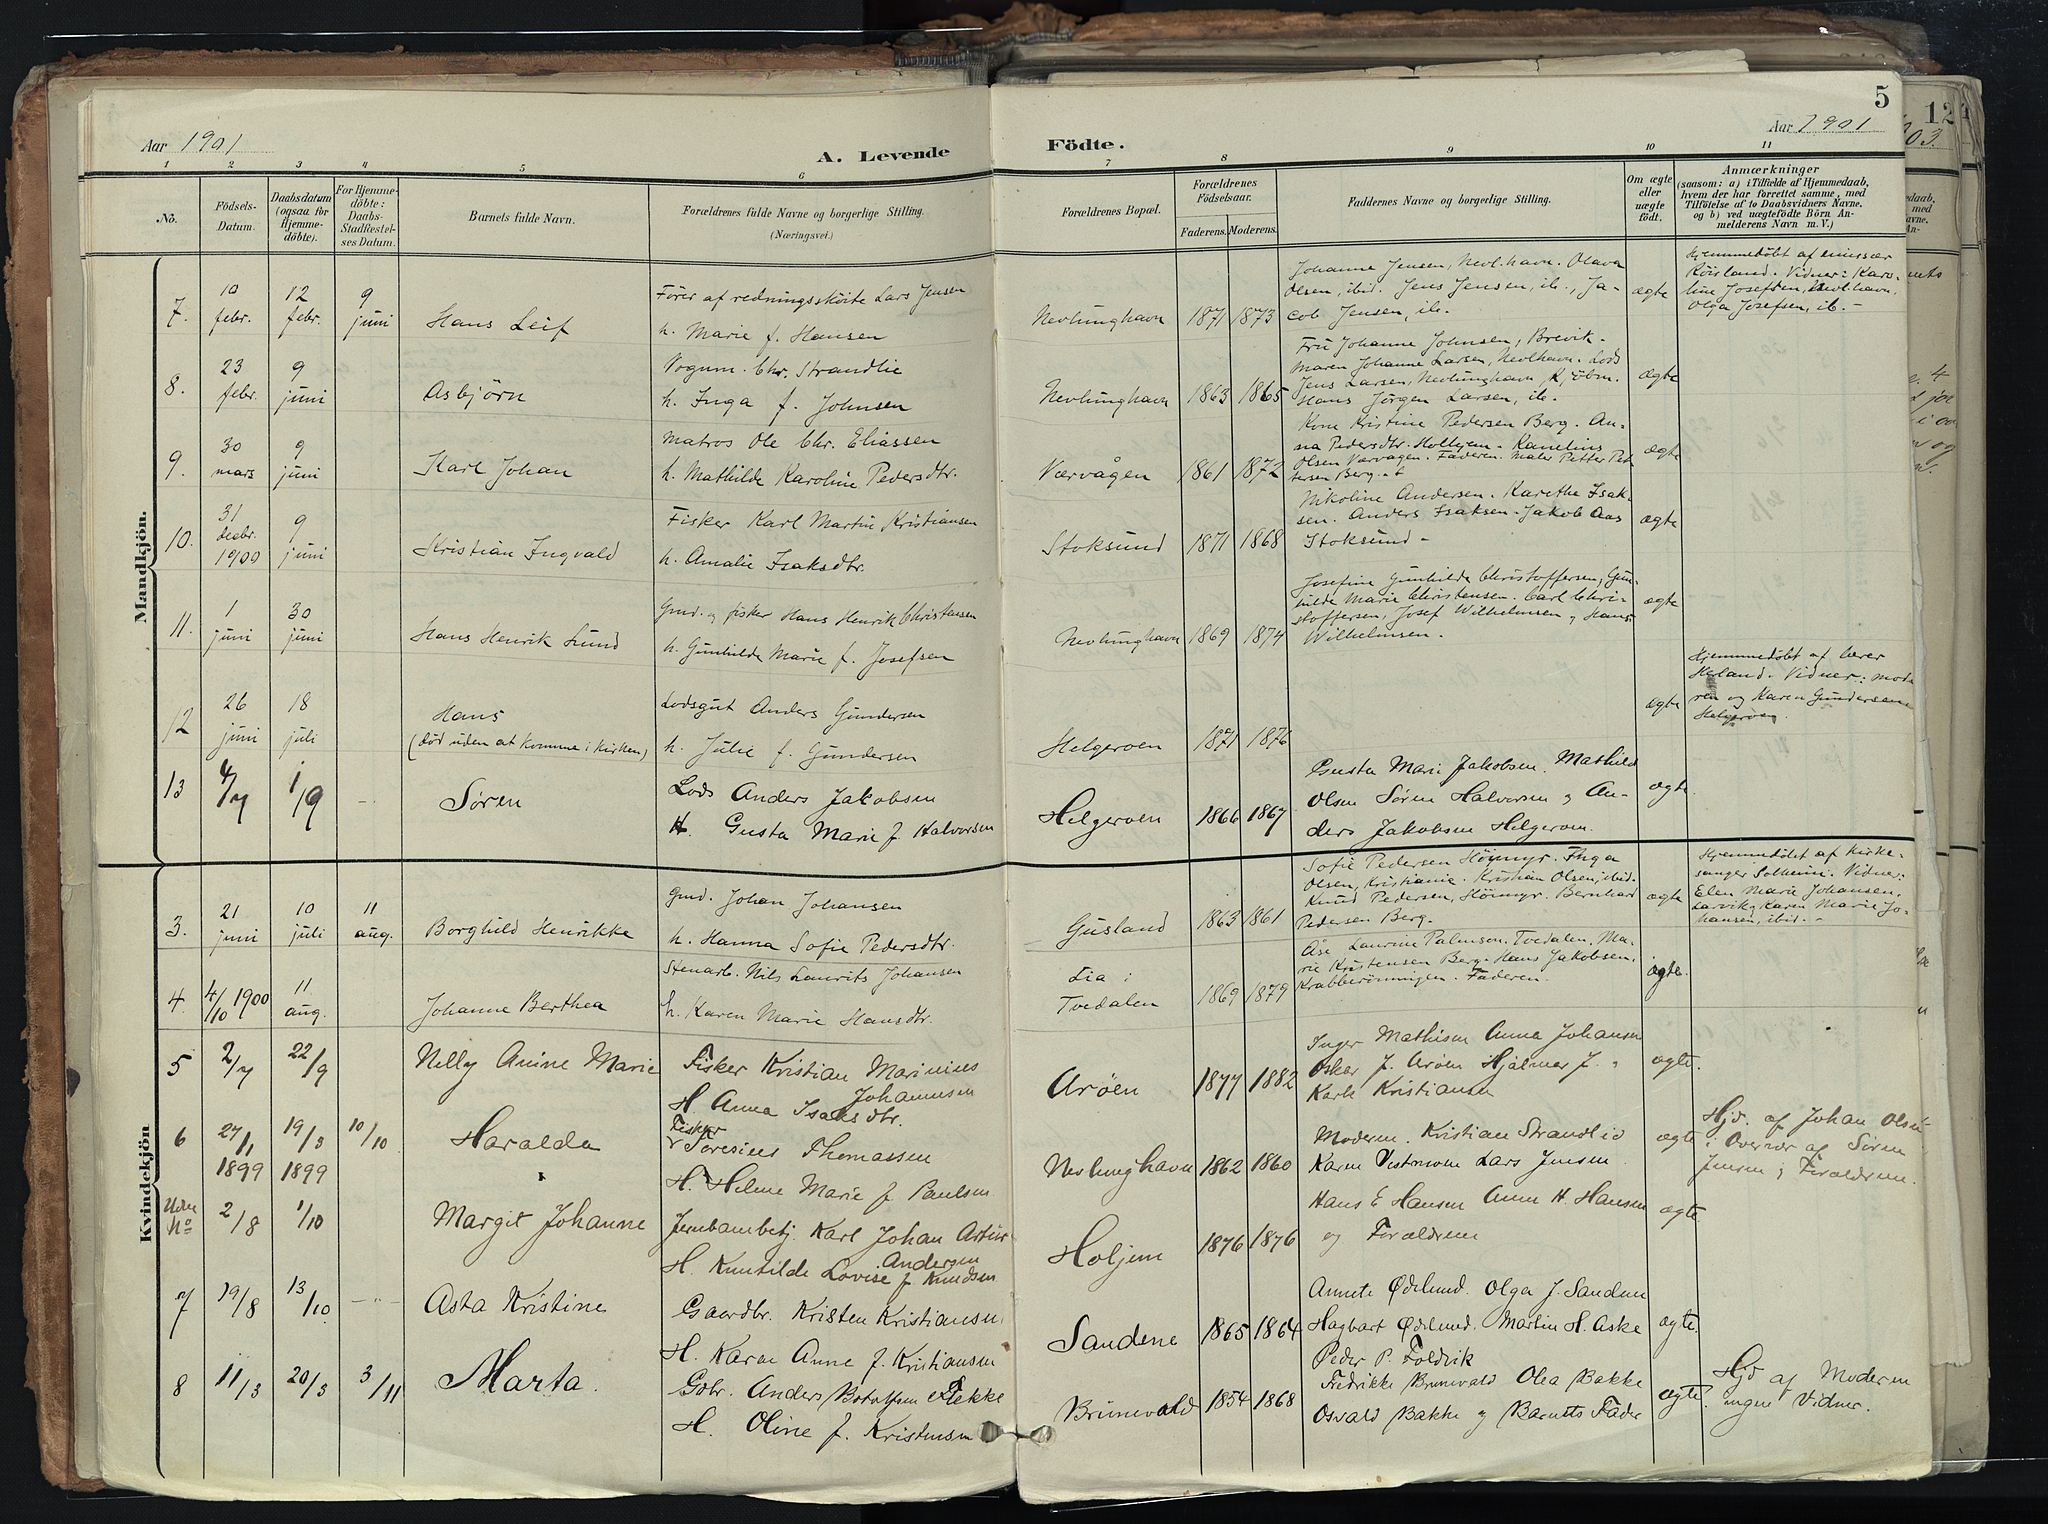 Aar 1901
A. Levende
1 2 3 4 5 6
Nô.
Födsels-
Datum.
Daabsdatum
(ogsaa for
Hjemme-
döbte).
For Hjemme-
döbte:
Daabs-
Stadfæstel-
ses Datum.
Barnets fulde Navn.
Forældrenes fulde Navne og borgerlige Stilling.
(Næringsvei.)
Mandkjön.
7. 10 febr. 12 febr. 9 juni Hans Leif
Fører af redningsskøite Lars Jensen
h. Marie f. Hansen
8. 23 febr. 9 juni Asbjörn
Vogum. Chr. Strandlie
h. Inga f. Johnsen
9. 30 mars 9 juni Karl Johan
Matros Ole Chr. Eliassen
h. Mathilde Karoline Pedersdtr.
10. 31 decbr. 1900 9 juni Kristian Ingvald
Fisker Karl Martin Kristiansen
h. Amalie Isaksdtr.
11. 1 juni 30 juni Hans Henrik Lund
Gmd. og fisker Hans Henrik Christensen
h. Gunhilde Marie f. Josefsen
12 26 juni 18 juli Hans
(död uden at komme i kirken)
Lodsgut Anders Gundersen
h. Julie f. Gundersen
13 4/7 1/9 - Søren
Lods Anders Jakobsen
H. Gusta Marie f Halvorsen
Kvindekjön
3. 21 juni 10 juli 11 aug. Borghild Henrikke
Gmd. Johan Johansen
h. Hanna Sofie Pedersdtr.
4 4/10 1900 11 aug. Johanne Berthea
Stenarb. Nils Laurits Johansen
h. Karen Marie Hansdtr.
5 2/7 22/9 Nelly Anine Marie
Fisker Kristian Marinius
Johannsen
H Anna Isaksdtr.
6 27/1 1899 19/3 1899 10/10 Haralda
Fisker
Søresius Thomassen
H. Helene Marie f Paulsen
Uden No 2/8 1/10 Margit Johanne
Jernbanebetj. Karl Johan Artur
Andersen
H. Knutilde Lovise f Knudsen
7 19/8 13/10 - Asta Kristine
Gaardbr. Kristen Kristiansen
H. Karen Anne f. Kristiansen
8 11/3 20/3 3/11 Marta.
Gdbr. Anders Botolfsen Flekke
H. Oline f. Kristensen
5
Aar 1901
Födte.
7 8 9 10 11
Forældrenes Bopæl.
Forældrenes
Födselsaar.
Faderens. Moderens.
Faddernes Navne og borgerlige Stilling.
Om ægte
eller
uægte
födt.
Anmærkninger
(saasom: a) i Tilfælde af Hjemmedaab,
hvem der har forrettet samme, med
Tilföielse af to Daabsvidners Navne.
og b) ved uægtefödte Börn An-
melderens Navn m. V.)
Nevlunghavn 1871 1873
Johanne Jensen, Nevl.havn. Olava
Olsen, ibid. Jens Jensen, ib., Ja-
cob Jensen, ib.
ægte
Hjemmedöbt af emissær
Röisland. Vidner: Karo-
line Josefsen, Nevl.havn,
Olga Josefsen, ib. -
Nevlunghavn 1863 1865
Fru Johanne Johnsen, Brevik.
Maren Johanne Larsen, Nevlhavn. Lods
Jens Larsen, Nevlunghavn, Kjöbm.
Hans Jörgen Larsen, ib.
ægte
Værvågen 1861 1872
Kone Kristine Pedersen Berg. An-
na Pedersdtr. Holtjem. Kanelius
Olsen Værvågen. Faderen. Maler Petter Pet-
tersen Berg.
ægte
Stoksund 1871 1868
Nikoline Andersen. Karethe Isak-
sen. Anders Isaksen. Jakob Aas
Stoksund -
ægte
Nevlunghavn 1869 1874
Josefine Gunhilde Christoffersen, Gun-
hilde Marie Christensen. Carl Chri-
stoffersen, Josef Wilhelmsen og Hans
Wilhelmsen.
ægte
Helgeroen 1871 1876
ægte
Hjemmedöbt af lærer
Herland. Vidner: mode-
ren og Karen Gundersen
Helgeroen.
Helgeroen 1866 1867
Gusta Marie Jakobsen. Mathild
Olsen Søren Halvorsen og An-
ders Jakobsen Helgeroen.
ægte.
Gusland 1863 1861
Sofie Pedersen Höimyr. Inga
Olsen, Kristiania. Kristian Olsen, ibid.
Knud Pedersen, Höimyr. Bernhard
Pedersen Berg.
ægte
Hjemmedöbt af kirke-
sanger Solheim. Vidner:
Elen Marie Johansen,
Larvik, Karen Marie Jo-
hansen, ibid. -
Lia i
Tvedalen 1869 1879
Åse Laurine Palmeson. Tvedalen. Ma-
rie Kristensen Berg. Hans Jakobsen,
Krabberönningen. Faderen.
ægte.
Arøen 1877 1882
Inger Mathisen Anna Johansen
Oskar J. Arøen Hjalmar J. "
Karle Kristiansen
ægte.
Nevlunghavn 1862 1860
Moderen. Kristian Strandlid
Karen Lars Jensen
ægte
Hjd. af Johan Olsen
i Overvær af Søren
Jensen og Forældrene.
Holjem 1876 1876
Hans E Hansen Anne H. Hansen
og Forældrene
ægte
Sandene 1865 1864
Annete Ødelund. Olga J. Sanden
Hagbart Ødelund. Martin H. Aske
Peder P. Foldvik
ægte.
Brunevald 1854 1868
Fredrikke Brunevald Olea Bakke
Osvald Bakke og Barnets Fader
ægte.
Hjd af Moderen
ingen Vidner.
12